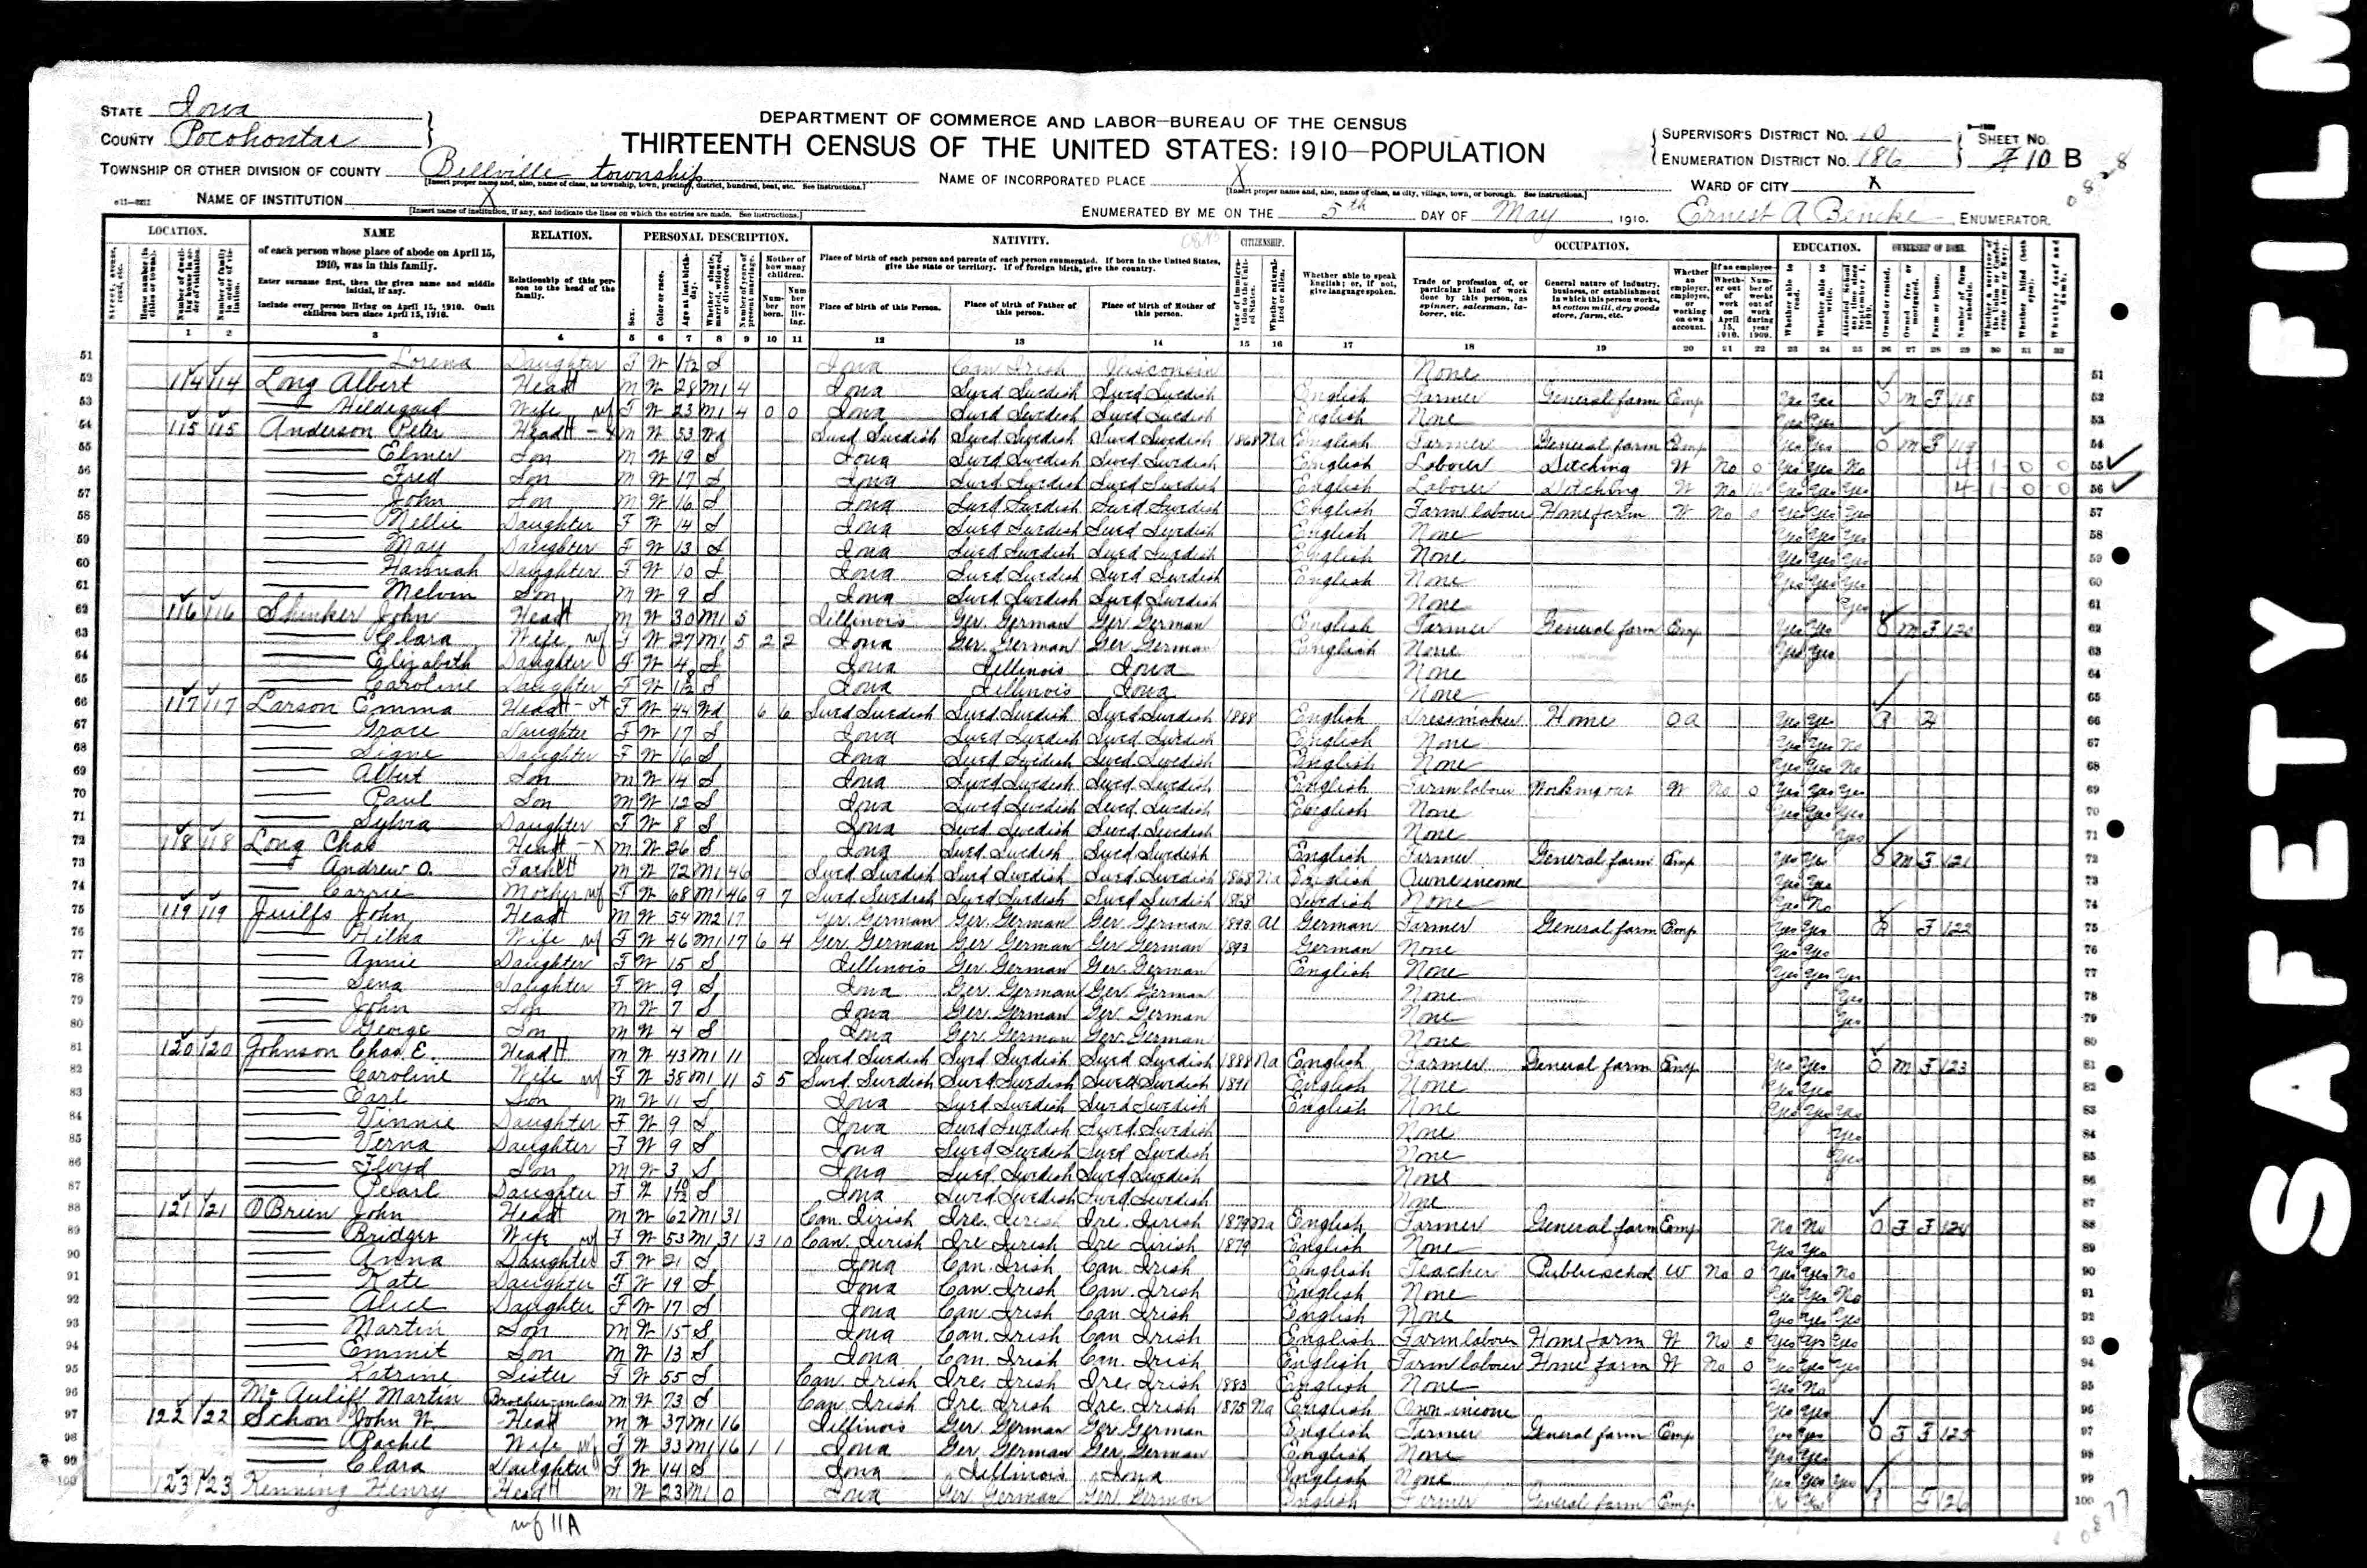 STATE Iowa
COUNTY Pocohontas
TOWNSHIP OR OTHER DIVISION OF COUNTY Bellville township
[Insert proper name and, also, name of class, as township, town, precinct, district, hundred, beat, etc. See instructions.]
NAME OF INSTITUTION X
[Insert name of institution, if any, and indicate the lines on which the entries are made. See instructions.]
DEPARTMENT OF COMMERCE AND LABOR—BUREAU OF THE CENSUS
THIRTEENTH CENSUS OF THE UNITED STATES: 1910—POPULATION
NAME OF INCORPORATED PLACE X
[Insert proper name and, also, name of class, as city, village, town, or borough. See instructions.]
ENUMERATED BY ME ON THE 5th DAY OF May, 1910. Ernest A Bencke ENUMERATOR.
SUPERVISOR'S DISTRICT No. 10
ENUMERATION DISTRICT No. 186
SHEET No. 10 B
WARD OF CITY X
LOCATION. NAME RELATION. PERSONAL DESCRIPTION. NATIVITY. CITIZENSHIP. OCCUPATION. EDUCATION. OWNERSHIP OF HOME.
of each person whose place of abode on April 15, 1910, was in this family.
Enter surname first, then the given name and middle initial, if any.
Include every person living on April 15, 1910. Omit children born since April 15, 1910.
Relationship of this person to the head of the family.
Place of birth of each person and parents of each person enumerated. If born in the United States, give the state or territory. If of foreign birth, give the country.
Place of birth of this Person. Place of birth of Father of this person. Place of birth of Mother of this person.
Whether able to speak English; or, if not, give language spoken.
Trade or profession of, or particular kind of work done by this person, as spinner, salesman, laborer, etc.
General nature of industry, business, or establishment in which this person works, as cotton mill, dry goods store, farm, etc.
51 Lorena Daughter F W S Iowa Can Irish Wisconsin None
52 114 114 Long Albert Head M W 28 M1 4 Iowa Swed Swedish Swed Swedish English Farmer General farm Emp Yes Yes O M F 118
53 Hildegard Wife F W 23 M1 4 0 0 Iowa Swed Swedish Swed Swedish English None Yes Yes
54 115 115 Anderson Peter Head M W 53 Wd Swed Swedish Swed Swedish Swed Swedish 1868 Na English Farmer General farm Emp Yes Yes O M F 119
55 Elmer Son M W 19 S Iowa Swed Swedish Swed Swedish English Laborer Ditching W No 0 Yes Yes No
56 Fred Son M W 17 S Iowa Swed Swedish Swed Swedish English Laborer Ditching W No Yes Yes Yes
57 John Son M W 16 S Iowa Swed Swedish Swed Swedish English Farm labour Home farm W No 0 Yes Yes Yes
58 Nellie Daughter F W 14 S Iowa Swed Swedish Swed Swedish English None Yes Yes Yes
59 May Daughter F W 13 S Iowa Swed Swedish Swed Swedish English None Yes Yes Yes
60 Hannah Daughter F W 10 S Iowa Swed Swedish Swed Swedish English None Yes Yes Yes
61 Melvin Son M W 9 S Iowa Swed Swedish Swed Swedish None Yes
62 116 116 Shinker John Head M W 30 M1 5 Illinois Ger. German Ger. German English Farmer General farm Emp Yes Yes O M F 120
63 Clara Wife F W 27 M1 5 2 2 Iowa Ger. German Ger German English None Yes Yes
64 Elizabeth Daughter F W 4 S Iowa Illinois Iowa None
65 Caroline Daughter F W S Iowa Illinois Iowa None
66 117 117 Larson Emma Head F W 44 Wd 6 6 Swed Swedish Swed Swedish Swed Swedish 1888 English Dressmaker Home OA Yes Yes R H
67 Grace Daughter F W 17 S Iowa Swed Swedish Swed Swedish English None Yes Yes No
68 Signe Daughter F W 16 S Iowa Swed Swedish Swed Swedish English None Yes Yes No
69 Albert Son M W 14 S Iowa Swed Swedish Swed Swedish English Farm labour Working out W No 0 Yes Yes Yes
70 Paul Son M W 12 S Iowa Swed Swedish Swed Swedish English None Yes Yes Yes
71 Sylvia Daughter F W 8 S Iowa Swed Swedish Swed Swedish None Yes
72 118 118 Long Chas Head M W 26 S Iowa Swed Swedish Swed Swedish English Farmer General farm Emp Yes Yes O M F 121
73 Andrew O. Father M W 72 M1 46 Swed Swedish Swed Swedish Swed Swedish 1868 Na English Own income Yes Yes
74 Carrie Mother F W 68 M1 46 9 7 Swed Swedish Swed Swedish Swed Swedish 1868 Swedish None Yes No
75 119 119 Juilfs John Head M W 54 M2 17 Ger. German Ger. German Ger German 1893 Al German Farmer General farm Emp Yes Yes R F 122
76 Hilka Wife F W 46 M1 17 6 4 Ger German Ger German Ger German 1893 German None Yes Yes
77 Annie Daughter F W 15 S Illinois Ger. German Ger. German English None Yes Yes Yes
78 Sena Daughter F W 9 S Iowa Ger. German Ger. German None Yes
79 John Son M W 7 S Iowa Ger. German Ger German None Yes
80 George Son M W 4 S Iowa Ger. German Ger. German None
81 120 120 Johnson Chas E. Head M W 43 M1 11 Swed Swedish Swed Swedish Swed Swedish 1888 Na English Farmer General farm Emp Yes Yes O M F 123
82 Caroline Wife F W 38 M1 11 5 5 Swed. Swedish Swed Swedish Swed Swedish 1891 English None Yes Yes
83 Earl Son M W 11 S Iowa Swed Swedish Swed Swedish English None Yes Yes Yes
84 Vinnie Daughter F W 9 S Iowa Swed Swedish Swed. Swedish None Yes
85 Verna Daughter F W 9 S Iowa Swed Swedish Swed Swedish None Yes
86 Floyd Son M W 3 S Iowa Swed Swedish Swed Swedish None
87 Pearl Daughter F W S Iowa Swed Swedish Swed Swedish None
88 121 121 OBrien John Head M W 62 M1 31 Can. Irish Ire. Irish Ire. Irish 1879 Na English Farmer General farm Emp No No O F F 124
89 Bridget Wife F W 53 M1 31 13 10 Can. Irish Ire Irish Ire Irish 1879 English None Yes Yes
90 Anna Daughter F W 21 S Iowa Can. Irish Can. Irish English Teacher Public school W No 0 Yes Yes No
91 Kate Daughter F W 19 S Iowa Can. Irish Can. Irish English None Yes Yes No
92 Alice Daughter F W 17 S Iowa Can. Irish Can Irish English None Yes Yes Yes
93 Martin Son M W 15 S Iowa Can. Irish Can Irish English Farm labour Home farm W No 0 Yes Yes Yes
94 Emmit Son M W 13 S Iowa Can. Irish Can. Irish English Farm labour Home farm W No 0 Yes Yes Yes
95 Katrine Sister F W 55 S Can. Irish Ire. Irish Ire. Irish 1883 English None Yes No
96 Mc Auliff Martin Brother-in-law M W 73 S Can Irish Ire Irish Ire. Irish 1875 Na English Own income Yes Yes
97 122 122 Schon John W. Head M W 37 M1 16 Illinois Ger. German Ger. German English Farmer General farm Emp Yes Yes O F F 125
98 Rachel Wife F W 33 M1 16 1 1 Iowa Ger. German Ger German English None Yes Yes
99 Clara Daughter F W 14 S Iowa Illinois Iowa English None Yes Yes Yes
100 123 123 Kenning Henry Head M W 23 M1 0 Iowa Ger German Ger German English Farmer General farm Emp R F 126
wf 11A
SAFETY FILM